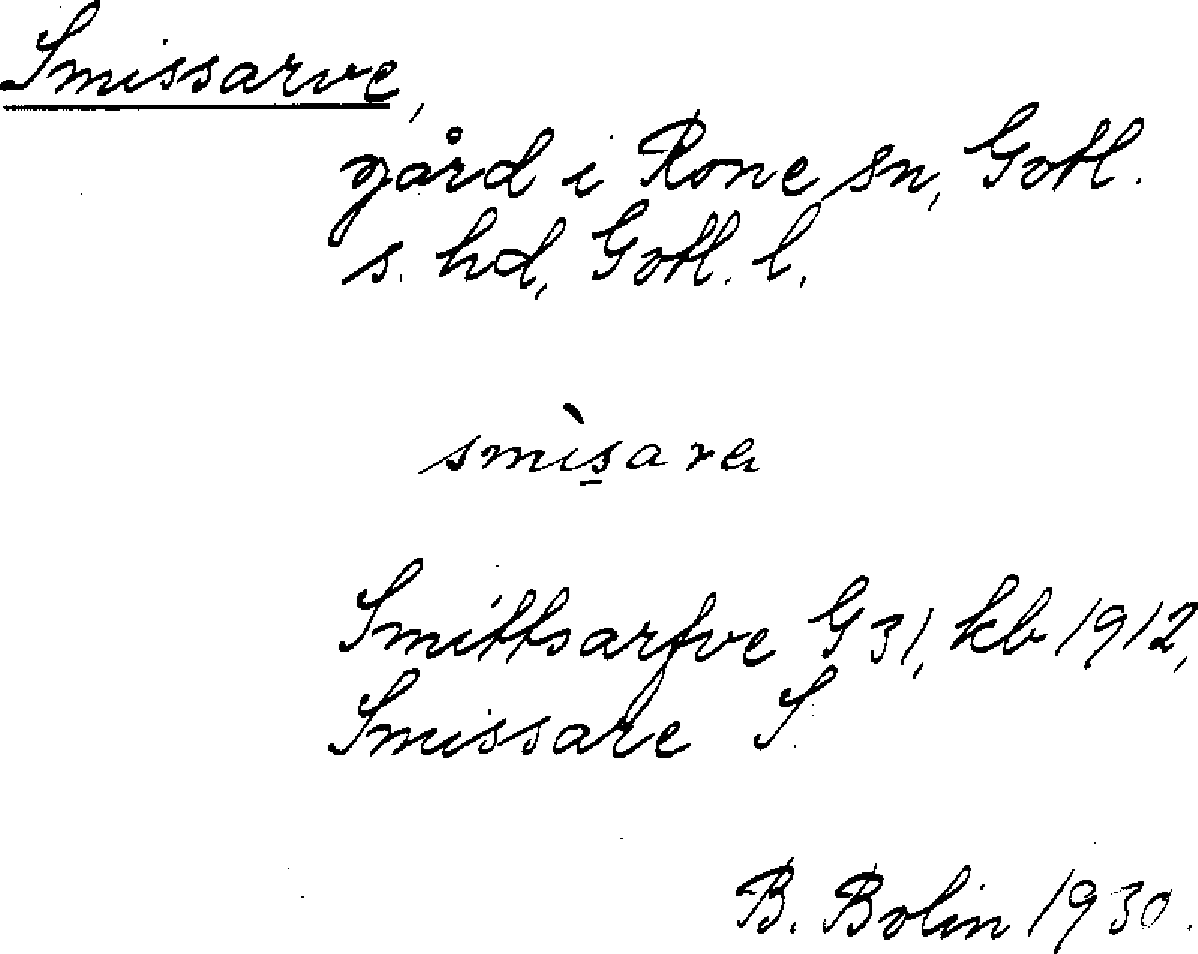 Smissarve,
gård i Rone sn, Gotl.
s. hd, Gotl. l.
smìs̲ara
Smittsarfve G 31, kb 1912,
Smissare S.
B. Bolin 1930.